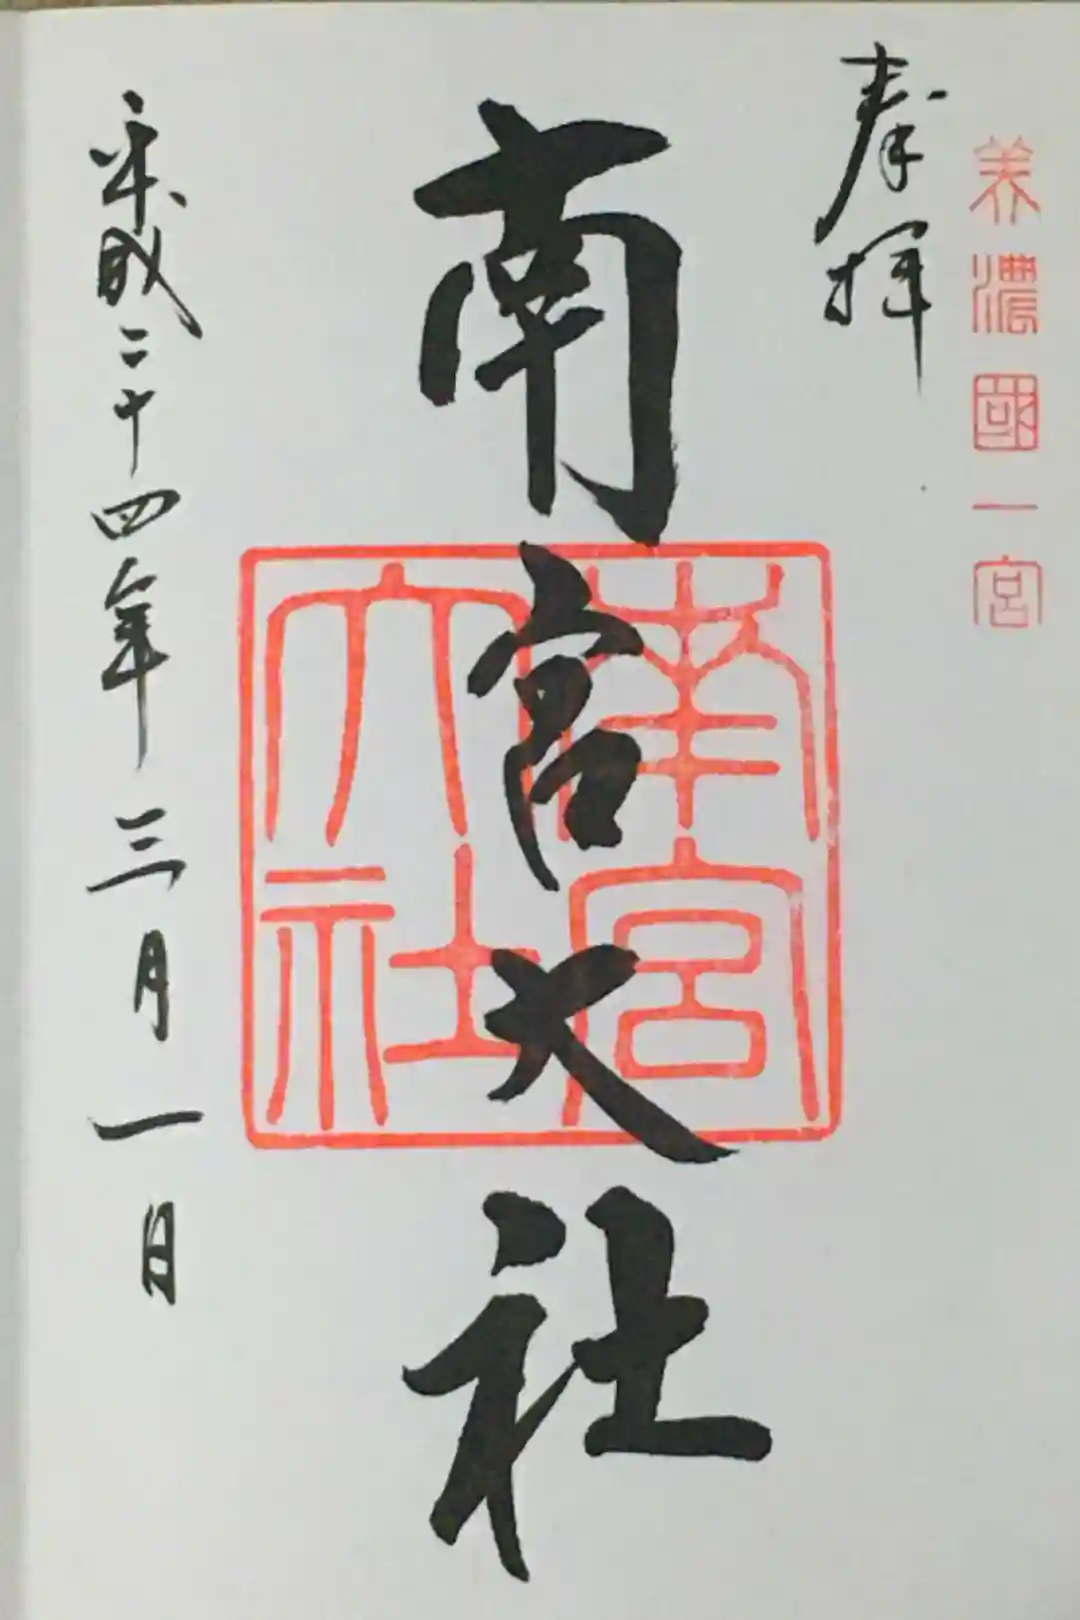 美濃國一宮
奉拝
南宮大社
南宮
大社
平成二十四年三月一日